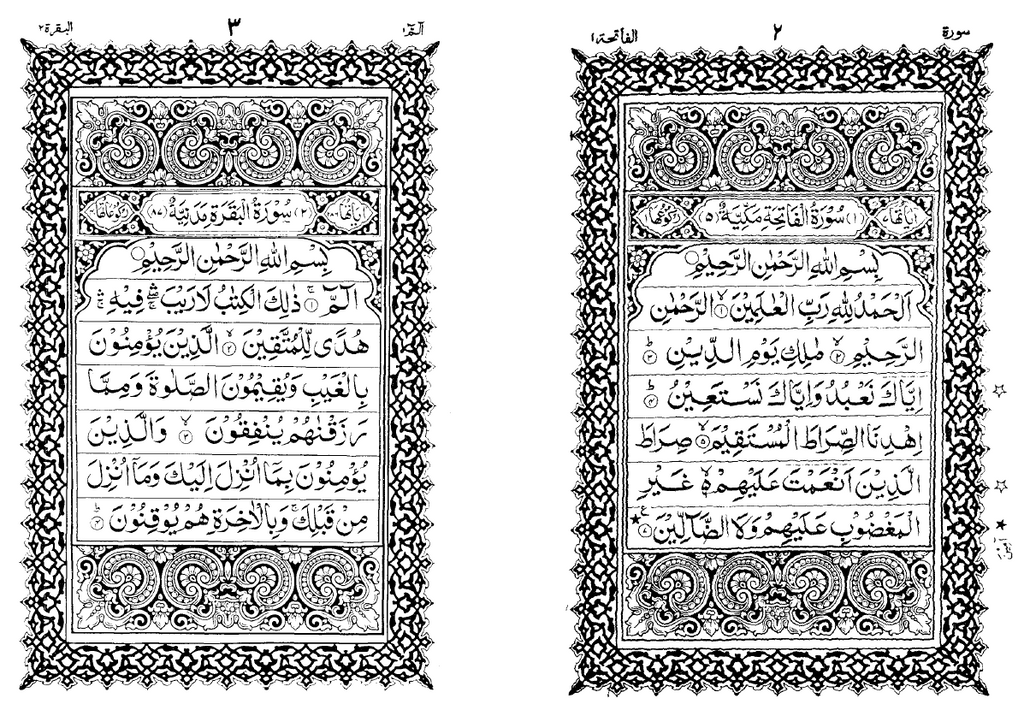 سورة ٢ الفاتحة ١
اٰيَاتُهَا (١) سُوْرَةُ الْفَاتِحَةِ مَكِّيَّةٌ (٥) رُكُوْعُهَا
بِسْمِ اللّٰهِ الرَّحْمٰنِ الرَّحِيْمِ
اَلْحَمْدُ لِلّٰهِ رَبِّ الْعٰلَمِيْنَ ۙ﴿١﴾ الرَّحْمٰنِ
الرَّحِيْمِ ۙ﴿٢﴾ مٰلِكِ يَوْمِ الدِّيْنِ ؕ﴿٣﴾
اِيَّاكَ نَعْبُدُ وَاِيَّاكَ نَسْتَعِيْنُ ؕ﴿٤﴾
اِهْدِنَا الصِّرَاطَ الْمُسْتَقِيْمَ ۙ﴿٥﴾ صِرَاطَ
الَّذِيْنَ اَنْعَمْتَ عَلَيْهِمْ ۙ۬ غَيْرِ
الْمَغْضُوْبِ عَلَيْهِمْ وَلَا الضَّآلِّيْنَ
الٓمّٓ ١ ٣ البقرة ٢
اٰيَاتُهَا (٢) سُوْرَةُ الْبَقَرَةِ مَدَنِيَّةٌ (٨٧) رُكُوْعَاتُهَا
بِسْمِ اللّٰهِ الرَّحْمٰنِ الرَّحِيْمِ
الٓمّٓ ۚ﴿١﴾ ذٰلِكَ الْكِتٰبُ لَا رَيْبَ ۛۖ فِيْهِ ۛۚ
هُدًى لِّلْمُتَّقِيْنَ ۙ﴿٢﴾ الَّذِيْنَ يُؤْمِنُوْنَ
بِالْغَيْبِ وَيُقِيْمُوْنَ الصَّلٰوةَ وَمِمَّا
رَزَقْنٰهُمْ يُنْفِقُوْنَ ۙ﴿٣﴾ وَالَّذِيْنَ
يُؤْمِنُوْنَ بِمَآ اُنْزِلَ اِلَيْكَ وَمَآ اُنْزِلَ
مِنْ قَبْلِكَ ۚ وَبِالْاٰخِرَةِ هُمْ يُوْقِنُوْنَ ؕ﴿٤﴾